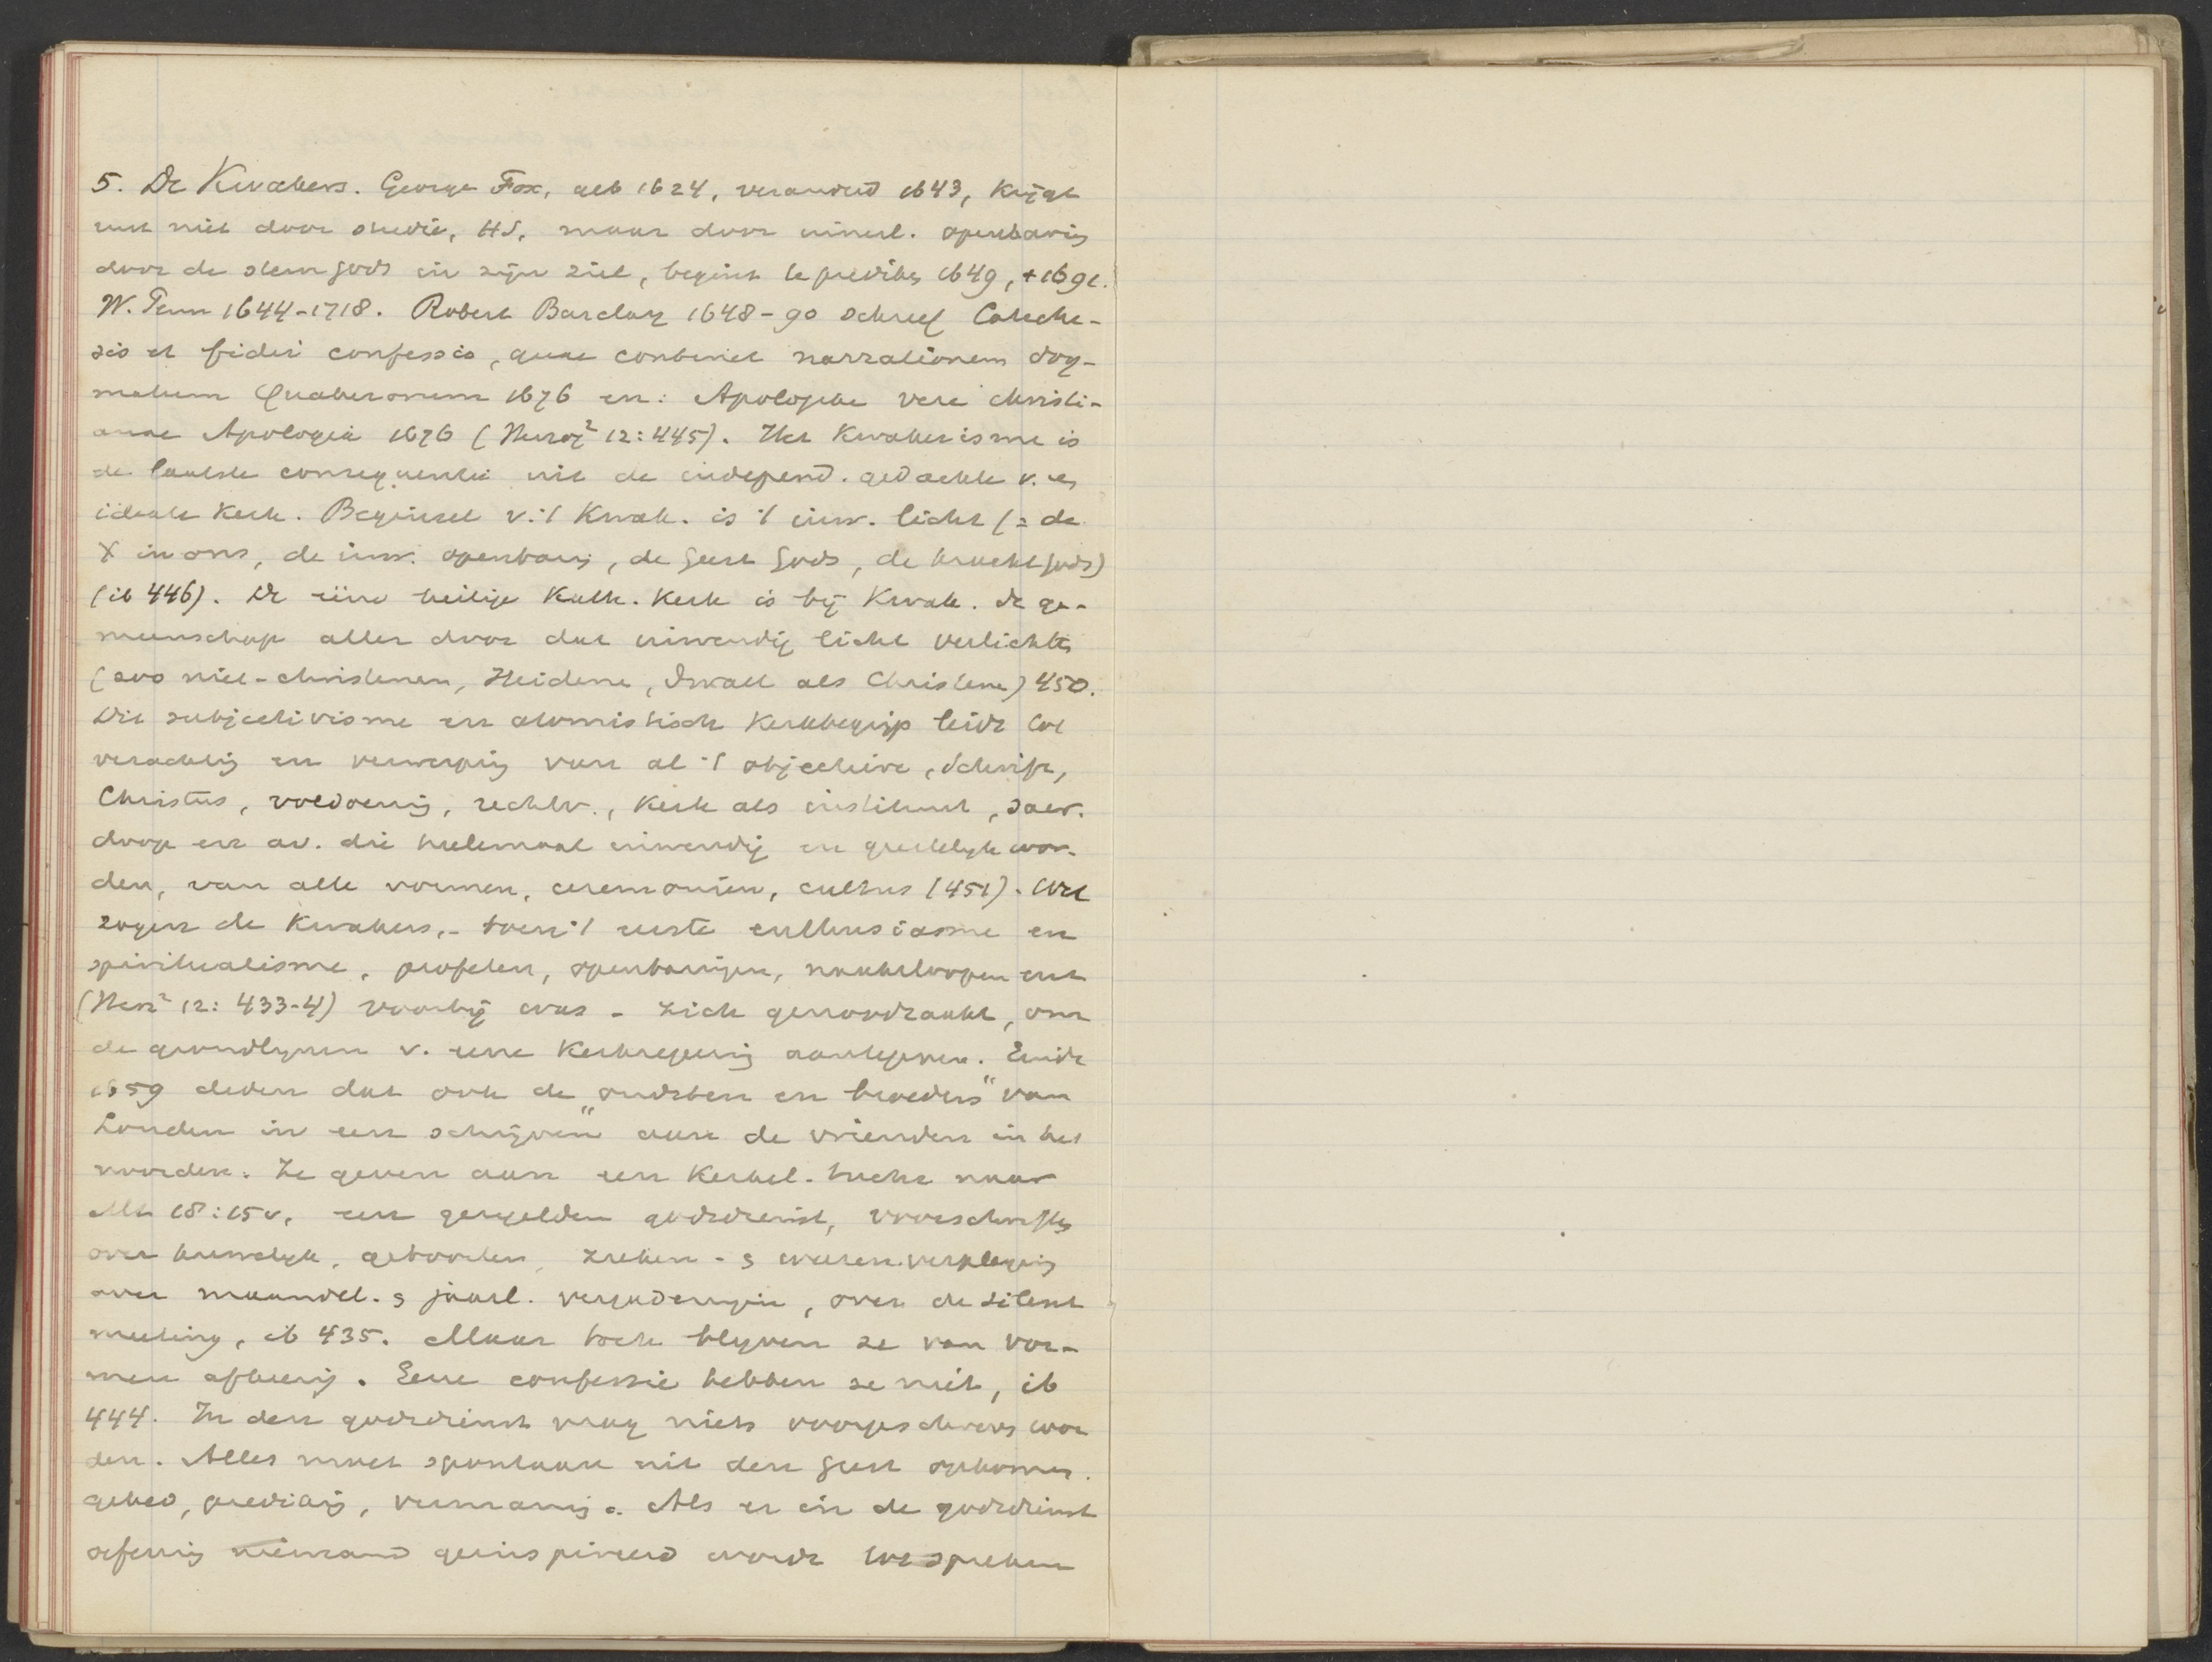 5. De Kwakers. George Fox, geb 1624, veranderd 1643, krijgt
rust niet door studie, HS, maar door inwend. openbaring
door de stem Gods in zijn ziel, begint te prediken 1649, + 1691.
W. Penn 1644-1718. Robert Barclay 1648-90 schreef Cateche-
sis et fidei confessio, quae continet narrationem dog-
matum Quakerorum 1676 en: Apologie vere christi-
anae Apologia 1676 (Herzog² 12:445). Het Kwakerisme is
de laatste consequentie uit de independ. gedachte v. een
ideale kerk. Beginsel v. 't Kwak. is 't inw. licht (= de
X in ons, de inw. openbaring, de geest Gods, de kracht Gods)
(ib 446). De eene heilige Kath. Kerk is bij Kwak. de ge-
meenschap aller door dat inwendig licht verlichten
(zoo niet-christenen, Heidenen, Zwall als Christenen) 450.
Dit subjectivisme en atomistisch Kerkbegrip leidt tot
verachting en verwerping van al 't objectieve, Schrift,
Christus, voldoening, rechtv., kerk als instituut, sacr.
doop en av. die heelemaal inwendig en geestelijk wor-
den, van alle vormen, ceremoniën, cultus (451). Wel
zagen de Kwakers, - toen 't eerste enthusiasme en
spiritualisme, profeten, openbaringen, naaktloopen enz
(Herz² 12: 433-4) voorbij was - zich genoodzaakt, om
de grondlijnen v. eene Kerkregeering aantegeven. Einde
1659 deden dat ook de „oudsten en broeders" van
Londen in een schrijven aan de vrienden in het
noorden. Ze geven aan een Kerkel. tucht naar
Mt 18:15v, een geregelden godsdienst, voorschriften
over huwelijk, geboorten, zieken- & weezenverpleging
over maandel. & jaarl. vergaderingen, over de silent
meeting, ib 435. Maar toch blijven ze van vor-
men afkeerig. Eene confessie hebben ze niet, ib
444. In den godsdienst mag niets voorgeschreven wor
den. Alles moet spontaan uit den geest opkomen.
gebed, prediking, vermaning. Als er in de godsdienst
oefening niemand geïnspireerd wordt tot spreken